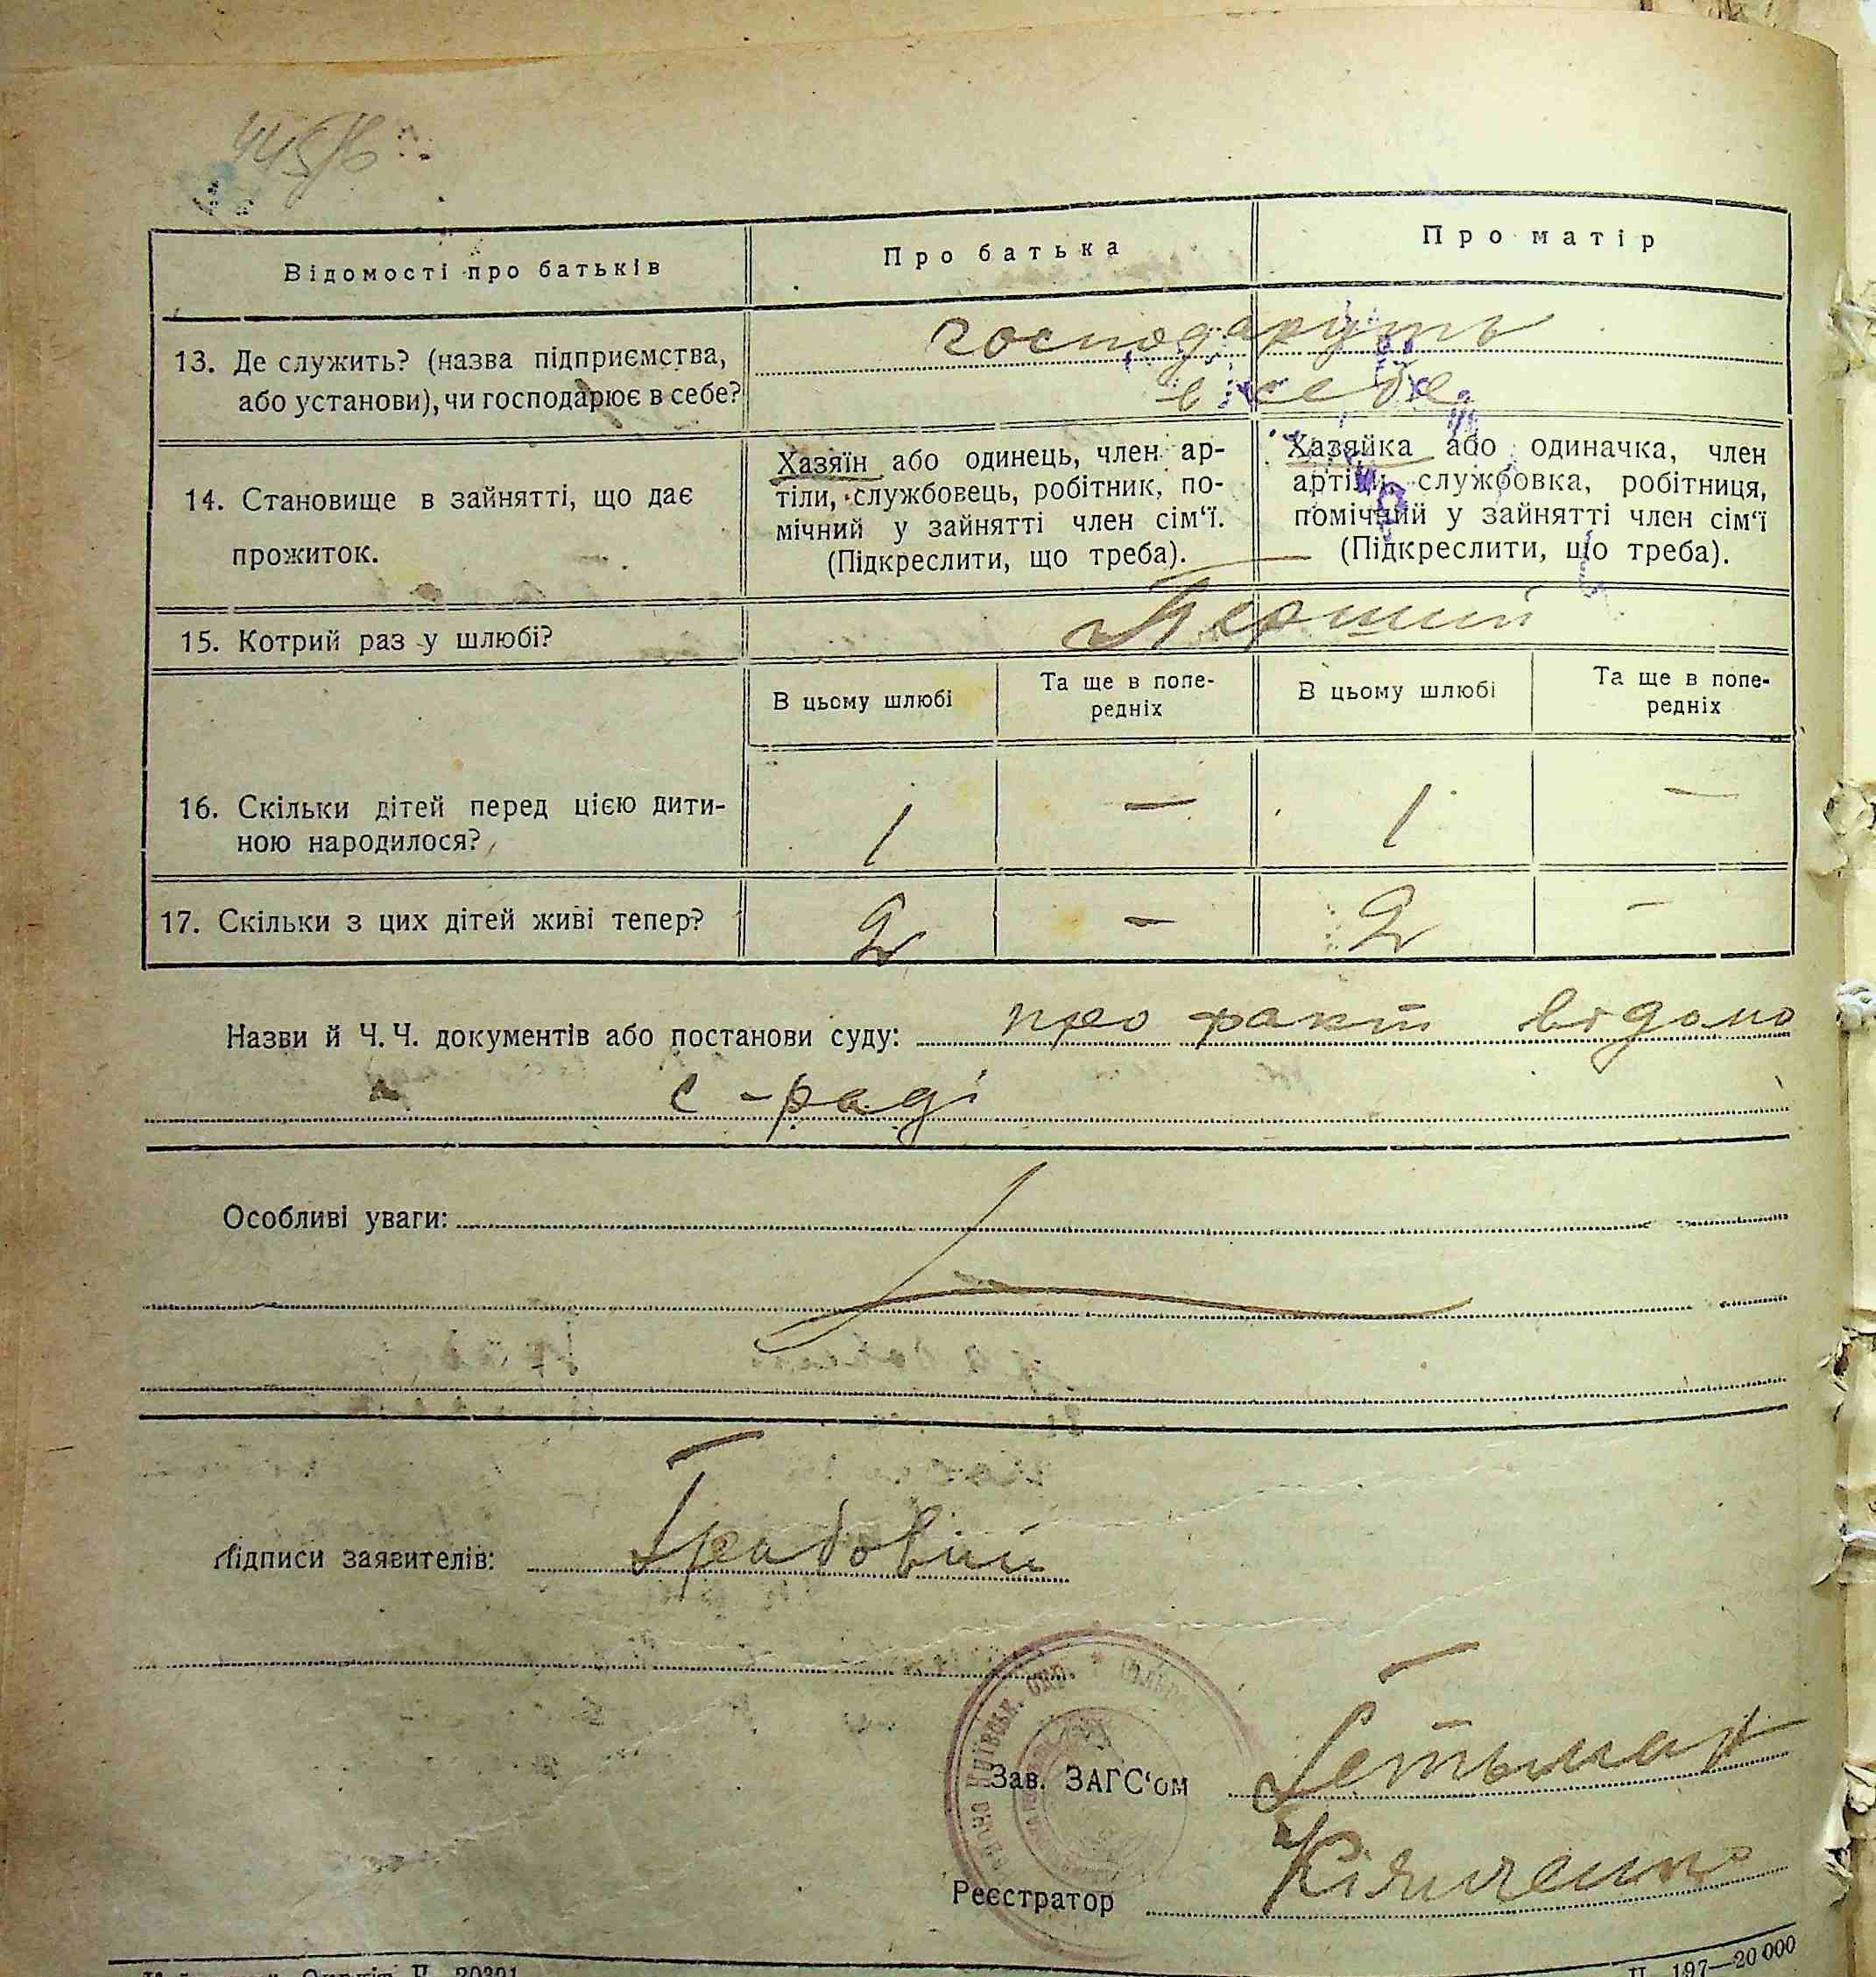 445/6
Відомості про батьків
Про батька
Про матір
13. Де служить? (назва підприємства,
або установи), чи господарює в себе?
господарують
в себе
14. Становище в зайнятті, що дає
прожиток.
Хазяїн або одинець, член ар-
тіли, службовець, робітник, по-
мічний у зайнятті член сім‘ї.
(Підкреслити, що треба).
Хазяйка або одиначка, член
артіли, службовка, робітниця,
помічний у зайнятті член сім‘ї
(Підкреслити, що треба).
15. Котрий раз у шлюбі?
Перший
В цьому шлюбі
Та ще в попе-
редніх
В цьому шлюбі
Та ще в попе-
редніх
16. Скільки дітей перед цією дити-
ною народилося?
1 — 1 —
17. Скільки з цих дітей живі тепер?
2 — 2 —
Назви й Ч. Ч. документів або постанови суду: про факт відомо
с-раді
Особливі уваги:
Підписи заявителів: Градовий
Київськ. окр.
Зав. ЗАГС‘ом Гетьман
Реєстратор
Окрліт П. 20301
П. 197—20 000